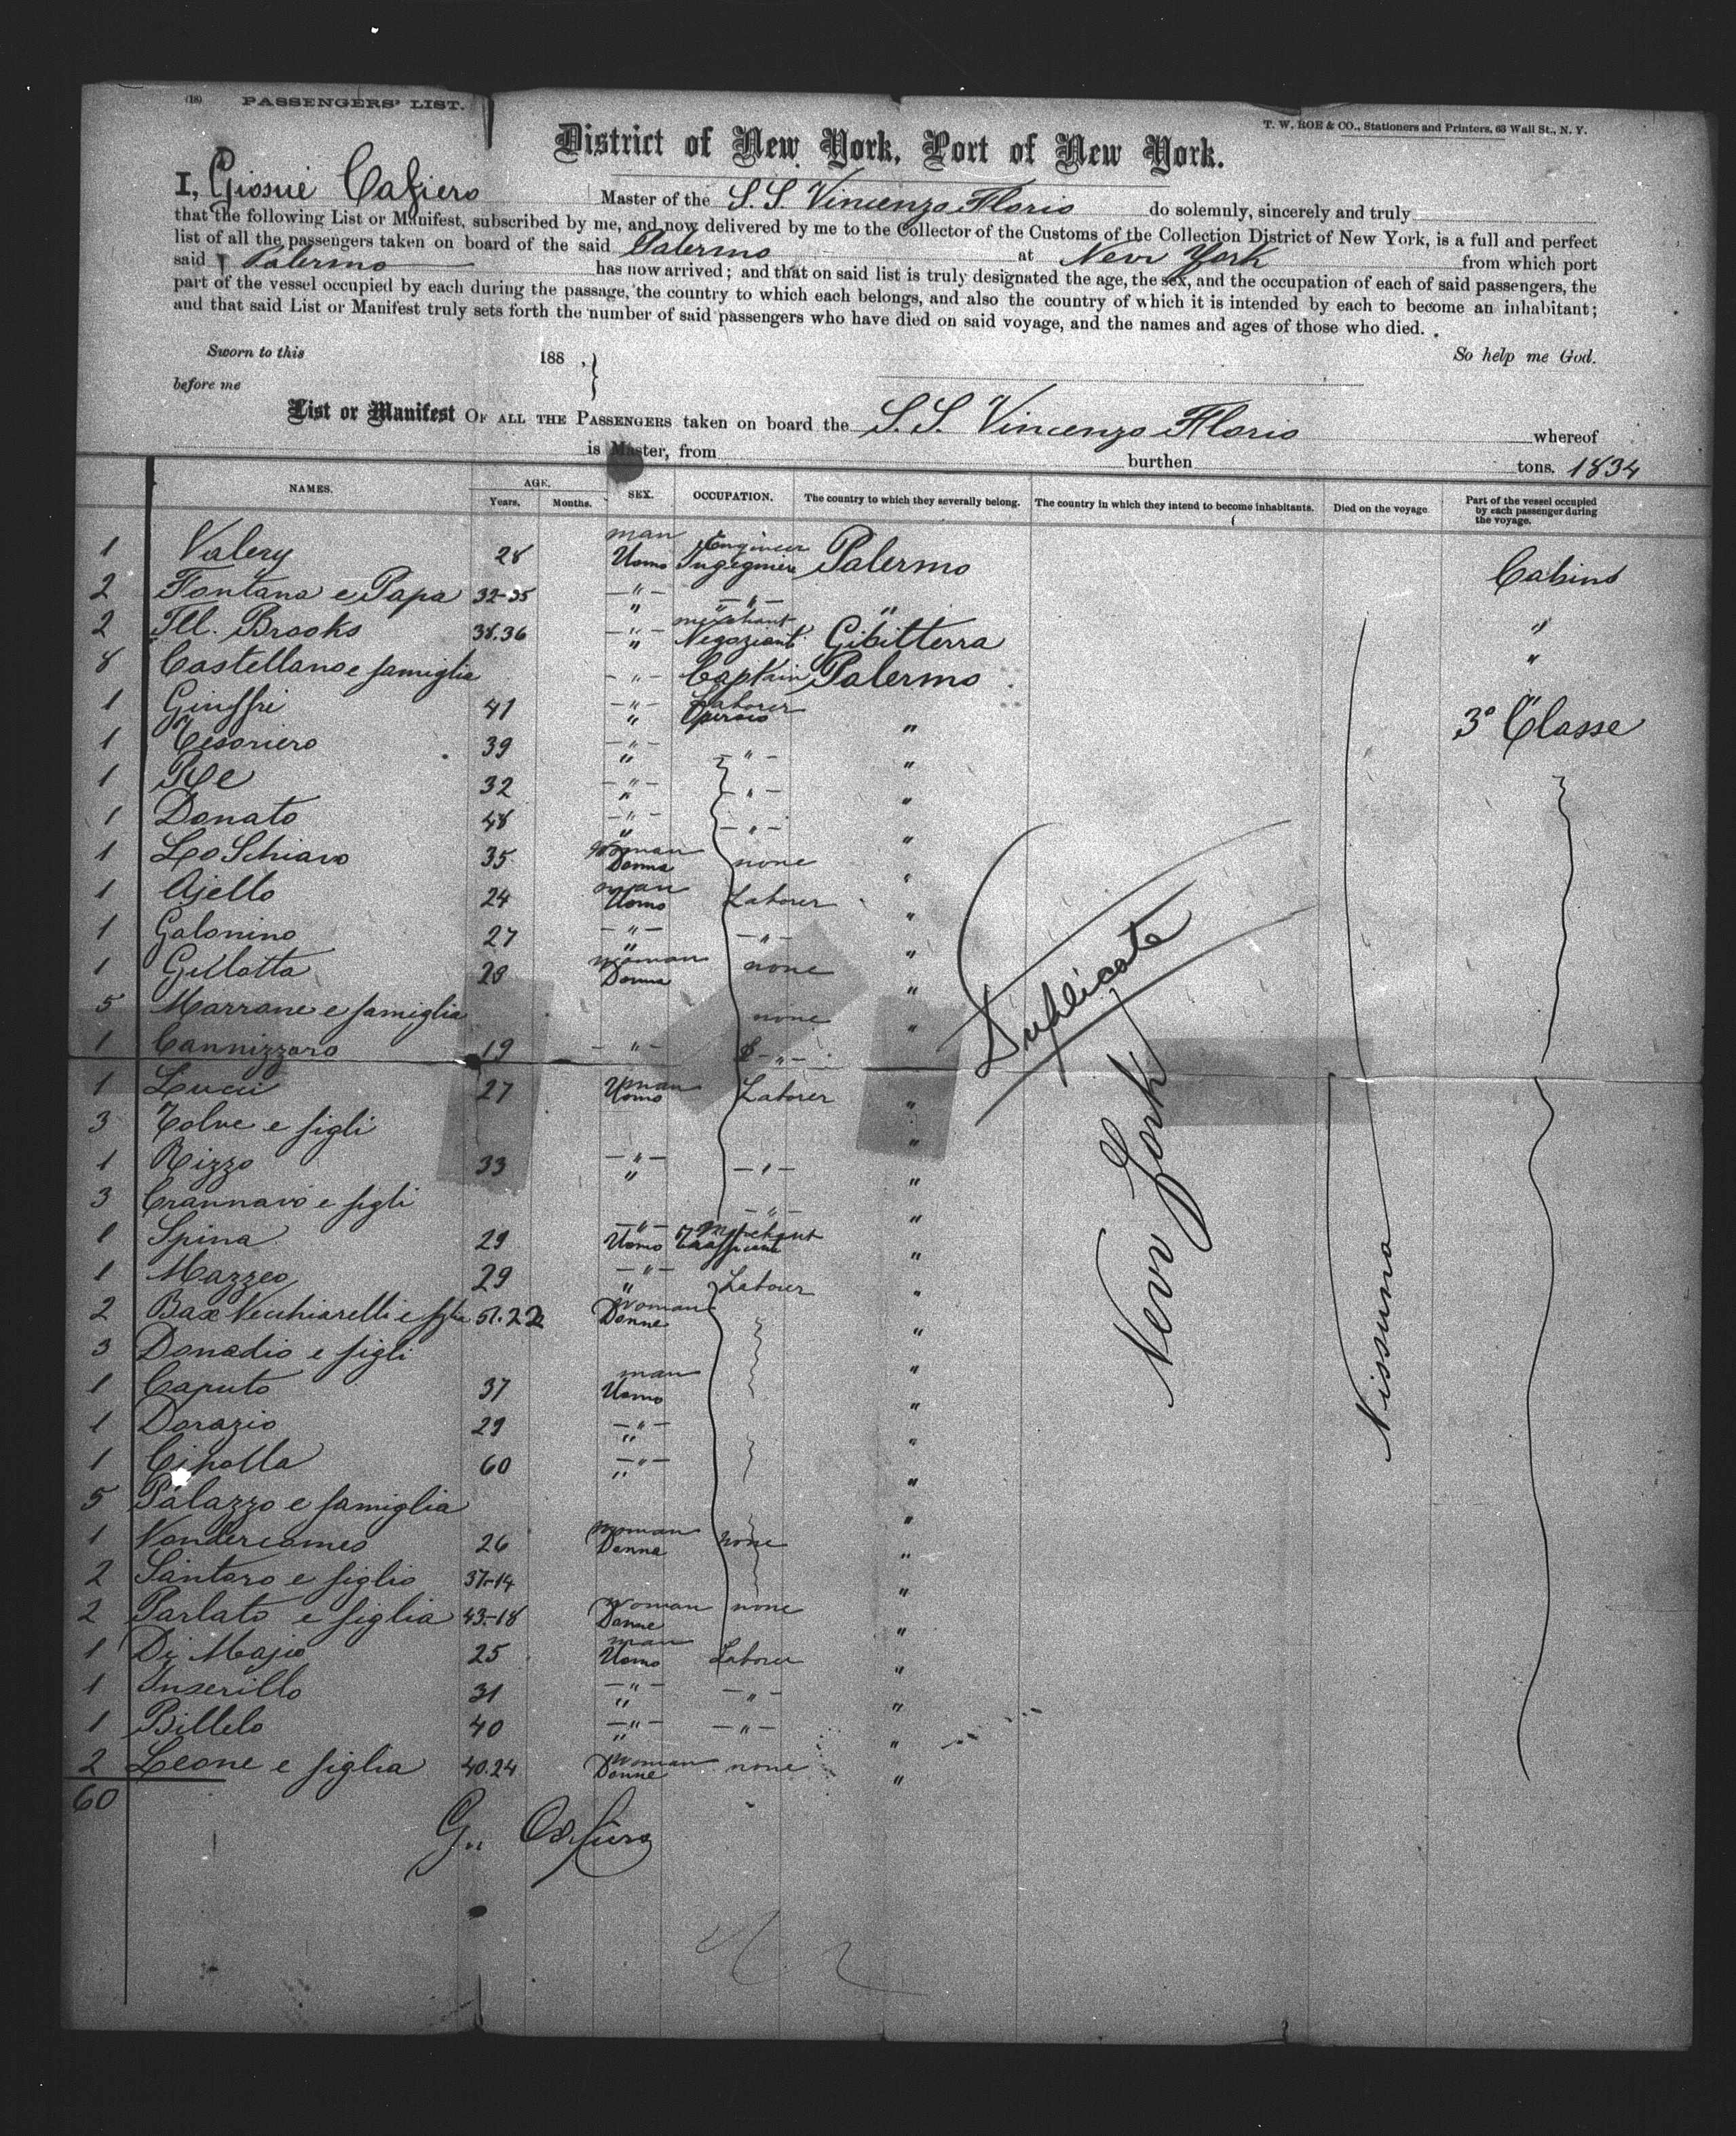 (18) PASSENGERS' LIST.
T. W. ROE & CO., Stationers and Printers, 63 Wall St., N. Y.
District of New York, Port of New York.
I, Giosuè Cafiero Master of the S.S. Vincenzo Florio do solemnly, sincerely and truly
that the following List or Manifest, subscribed by me, and now delivered by me to the Collector of the Customs of the Collection District of New York, is a full and perfect
list of all the passengers taken on board of the said Palermo at New York from which port
said Palermo has now arrived; and that on said list is truly designated the age, the sex, and the occupation of each of said passengers, the
part of the vessel occupied by each during the passage, the country to which each belongs, and also the country of which it is intended by each to become an inhabitant;
and that said List or Manifest truly sets forth the number of said passengers who have died on said voyage, and the names and ages of those who died.
Sworn to this 188 , } So help me God.
before me
List or Manifest OF ALL THE PASSENGERS taken on board the S.S. Vincenzo Florio whereof
is Master, from burthen tons. 1834
NAMES. AGE. Years. Months. SEX. OCCUPATION. The country to which they severally belong. The country in which they intend to become inhabitants. Died on the voyage Part of the vessel occupied by each passenger during the voyage.
1 Valery 28 man Uomo Engineer Ingegniere Palermo Cabins
2 Fontana e Papa 32-35 -"- " -"- " " "
2 Ill. Brooks 38.36 -"- " merchant Negozianti Gibilterra "
8 Castellano e famiglia -"- Captain Palermo "
1 Giuffri 41 -"- " Laborer Operaio " 3ª Classe
1 Tesoriero 39 -"- " -"- "
1 Re 32 -"- " -"- "
1 Donato 48 -"- " -"- "
1 Lo Schiavo 35 woman Donna none "
1 Ajello 24 man Uomo Laborer "
1 Galonino 27 -"- " -"- "
1 Gillotta 28 woman Donna none "
5 Marrane e famiglia none "
1 Cannizzaro 19 -"- -"-
1 Lucci 27 man Uomo Laborer "
3 Tolve e figli "
1 Rizzo 33 -"- " -"- "
3 Crannavo e figli -"- "
1 Spina 29 -"- Uomo Merchant "
1 Mazzeo 29 -"- " Labourer "
2 Bax Vecchiarelli e figlia 51.22 woman Donne "
3 Donadio e figli "
1 Caputo 37 man Uomo "
1 Dorazio 29 -"- " "
1 Cipolla 60 -"- " "
5 Palazzo e famiglia "
1 Vondercomes 26 woman Donna none "
2 Santoro e figlio 37-14 "
2 Parlato e figlia 43-18 woman Donne none "
1 Di Majo 25 man Uomo Laborer "
1 Inserillo 31 -"- " -"- "
1 Billelo 40 -"- " -"- "
2 Leone e figlia 40.24 woman Donne none "
60
Duplicate
New York
Nissuno
G. Cafiero